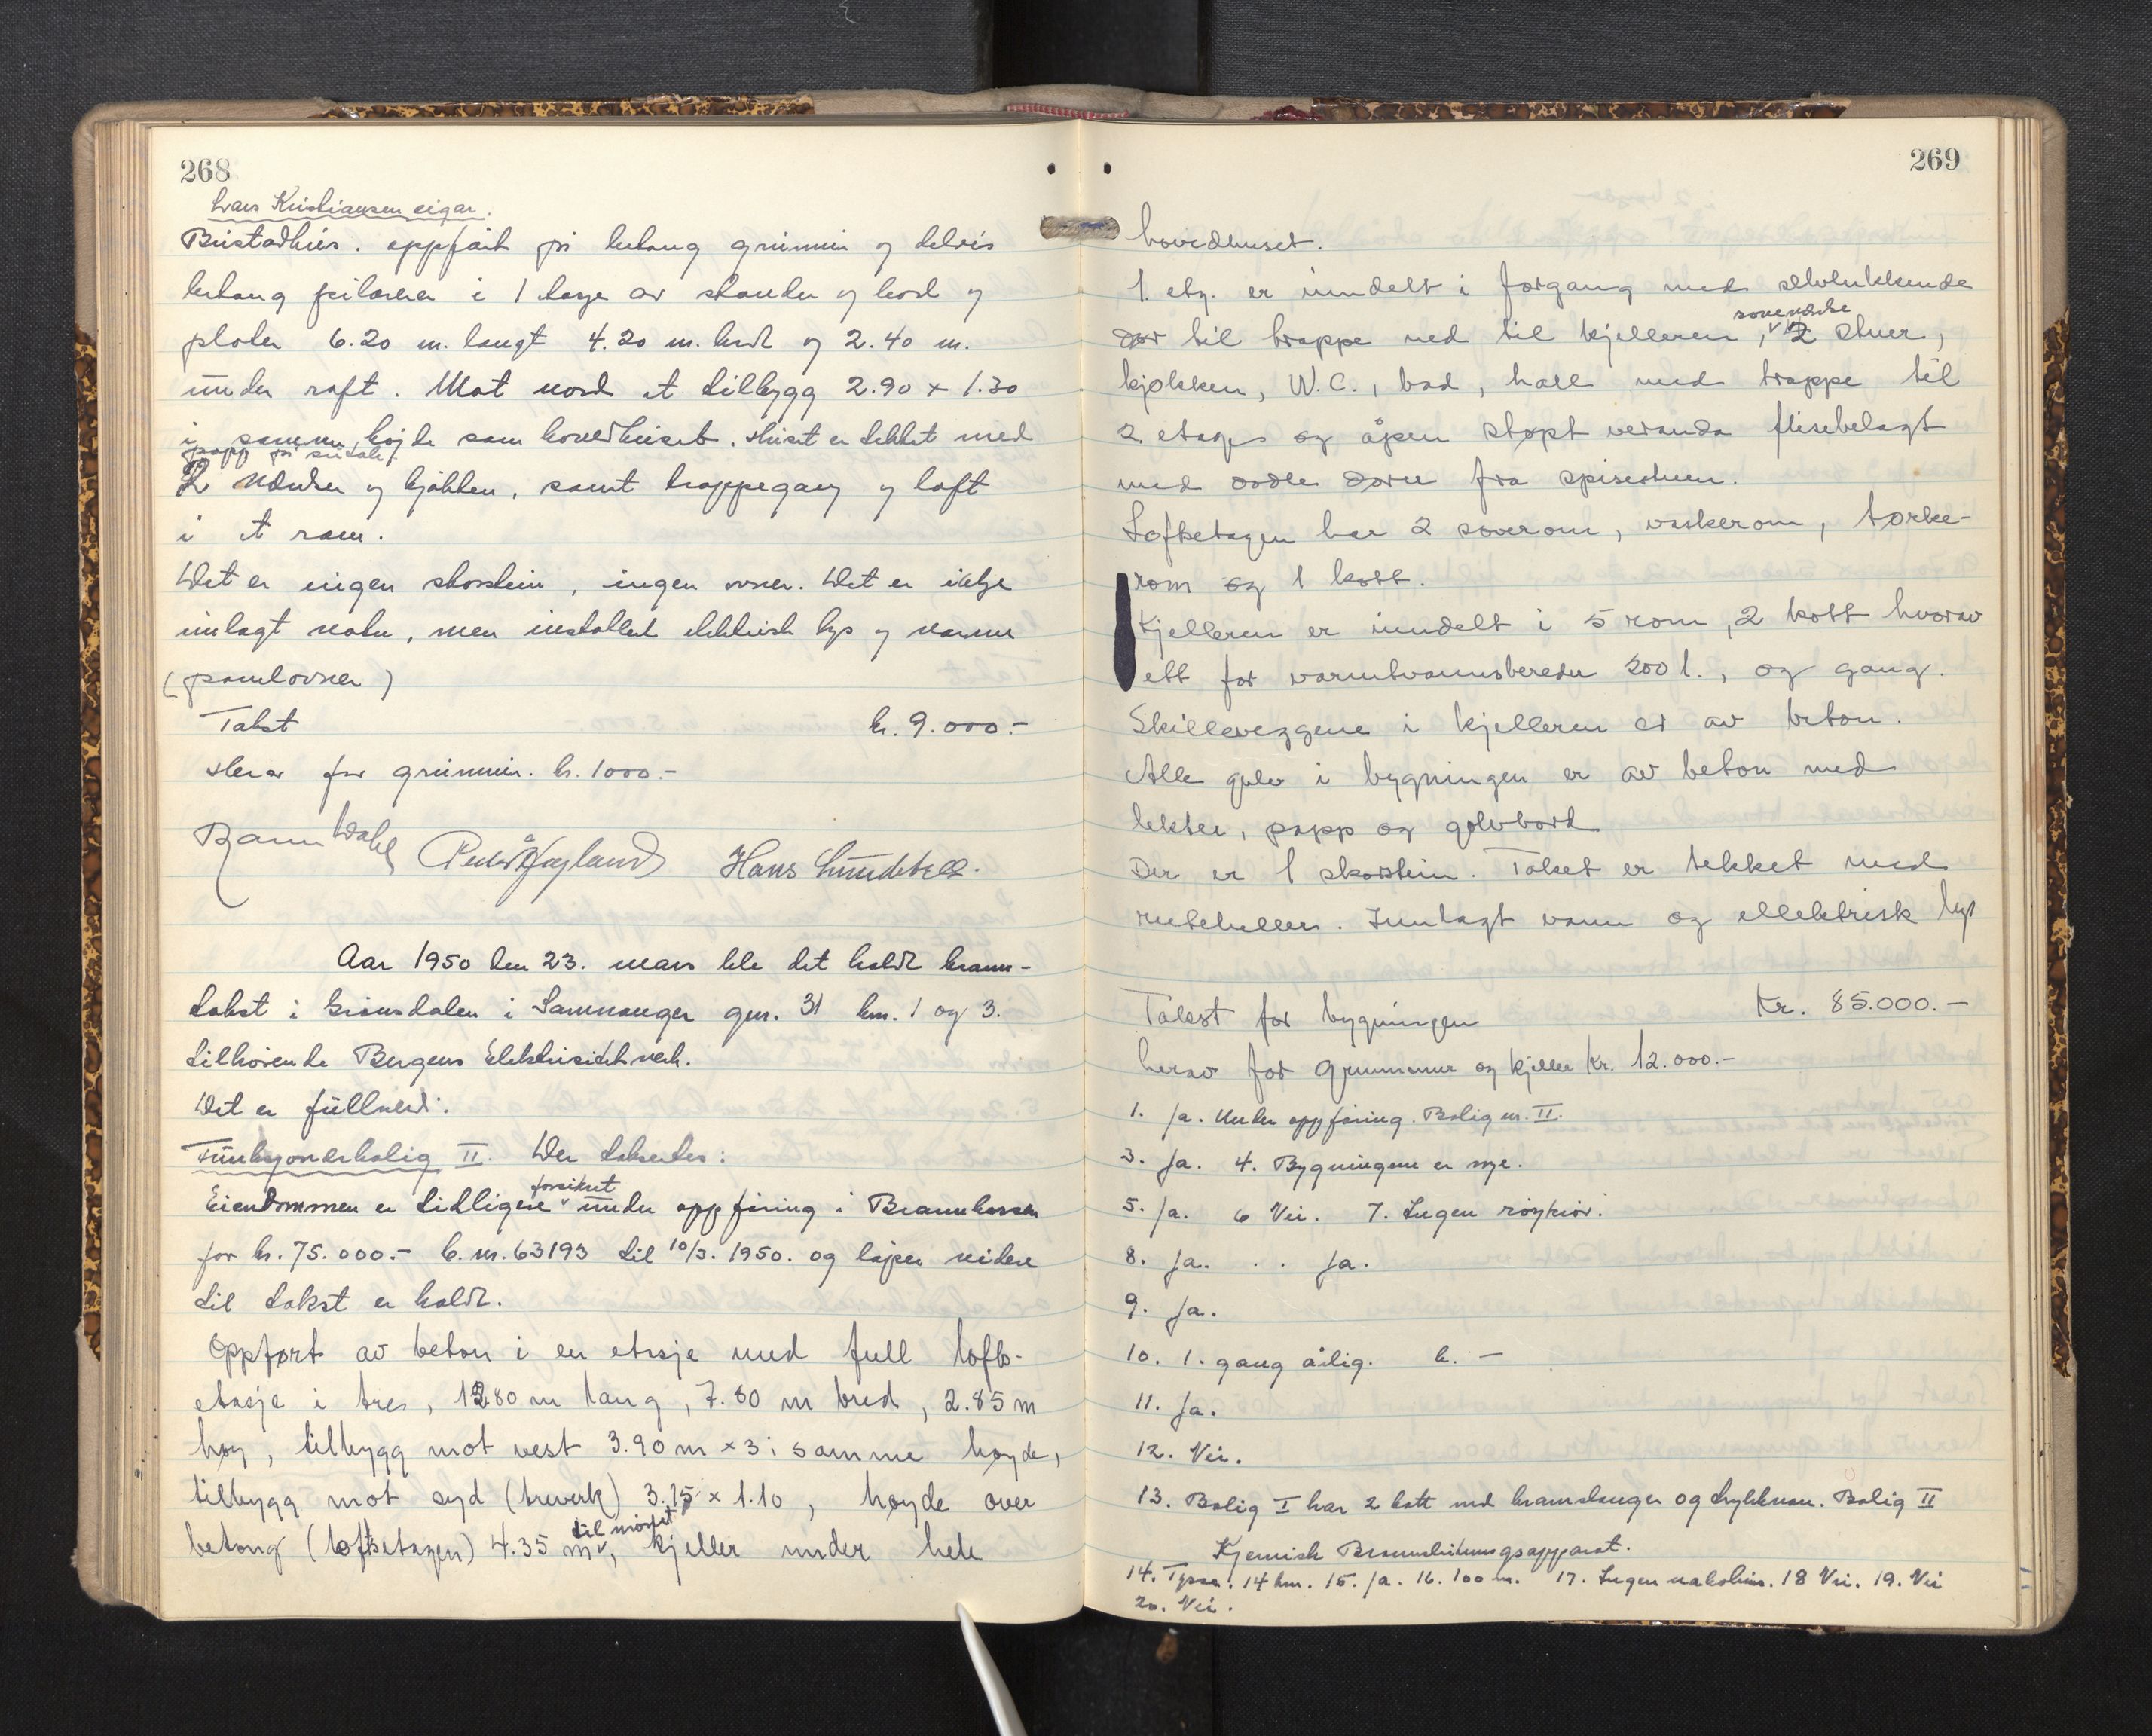 268
Lars Kristiansen eigar.
Bustadhus. oppført på betong grunnmur og delvis
betong pilarer i 1 etasje av stender og bord og
plater 6.20 m. langt 4.20 m. bredt og 2.40 m.
under raft. Mot nord et tilbygg 2.90 x 1.30
i samme højde som hovedhuset. Huset er tekket med
papp på sutak.
2 værelser og kjøkken, samt trappegang og loft
i et rom.
Det er ingen skorstein, ingen ovner. Det er ikkje
innlagt vatn, men installert elektrisk lys og varme
(panelovner)
Takst kr. 9.000.-
Herav for grunnmur. kr. 1000.-
Hans Lundetræ.
Aar 1950 den 23. mars ble det holdt brann-
takst i Grønsdalen i Samnanger gnr. 31 bnr. 1 og 3.
tilhørende Bergens Elektrisitetsverk.
Det er fullverdi.
Funksjonærbolig II. Der takseres:
forsikret
Eiendommen er tidligere under oppføring i Brannkassen
for kr. 75.000.- b. nr. 63193 til 10/3. 1950. og løper videre
til takst er holdt.
Oppført av beton i en etasje med full lofts-
etasje i tre, 12.80 m lang, 7.80 m bred, 2.85 m
høy, tilbygg mot vest 3.90 m x 3 i samme høyde,
tilbygg mot syd (treverk) 3.15 x 1.10, høyde over
til mønet
betong (loftsetagen) 4.35 m, kjeller under hele
269
hovedhuset.
1. etg. er inndelt i forgang med selvlukkende
soveværelse
dør til trappe ned til kjelleren, 2 stuer,
kjøkken, W.C., bad, hall med trappe til
2. etages og åpen støpt veranda flisebelagt
med doble dører fra spisestuen.
Loftsetagen har 2 soverom, vaskerom, tørke-
rom og 1 kott.
Kjelleren er inndelt i 5 rom, 2 kott hvorav
ett for varmtvannsbereder 200 l., og gang.
Skilleveggene i kjelleren er av beton.
Alle golv i bygningen er av beton med
lekter, papp og golvbord
Der er 1 skorstein. Taket er tekket med
rutehellen. Innlagt vann og ellektrisk lys
Takst for bygningen Kr. 85.000.-
herav for grunnmur og kjeller Kr. 12.000.-
1. Ja. Under oppføring. Bolig nr. II.
3. Ja. 4. Bygningene er nye.
5. Ja. 6 Nei. 7. Ingen røykrør.
8. Ja. . . Ja.
9. Ja.
10. 1. gang årlig. b. -
11. Ja.
12. Nei.
13. Bolig I har 2 kott med brannslanger og trykkvan. Bolig II
Kjemisk Brannslukningsapparat.
14. Tysse. 14 km. 15. Ja. 16. 100 m. 17. Ingen 18 Nei. 19. Nei
20. Nei.